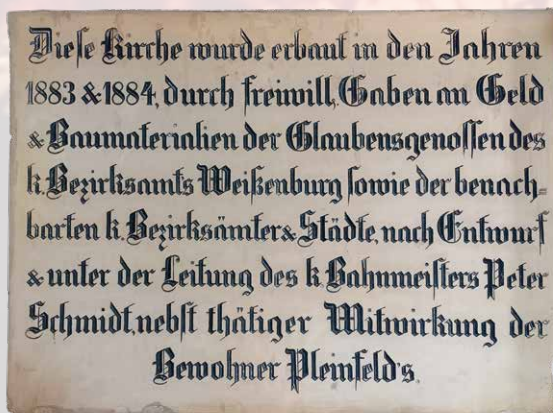 Diese Kirche wurde erbaut in den Jahren
1883 & 1884, durch freiwill. Gaben an Geld
& Baumaterialien der Glaubensgenossen des
k. Bezirksamts Weißenburg sowie der benach=
barten k. Bezirksämter & Städte, nach Entwurf
& unter der Leitung des k. Bahnmeisters Peter
Schmidt, nebst thätiger Mitwirkung der
Bewohner Pleinfeld's.